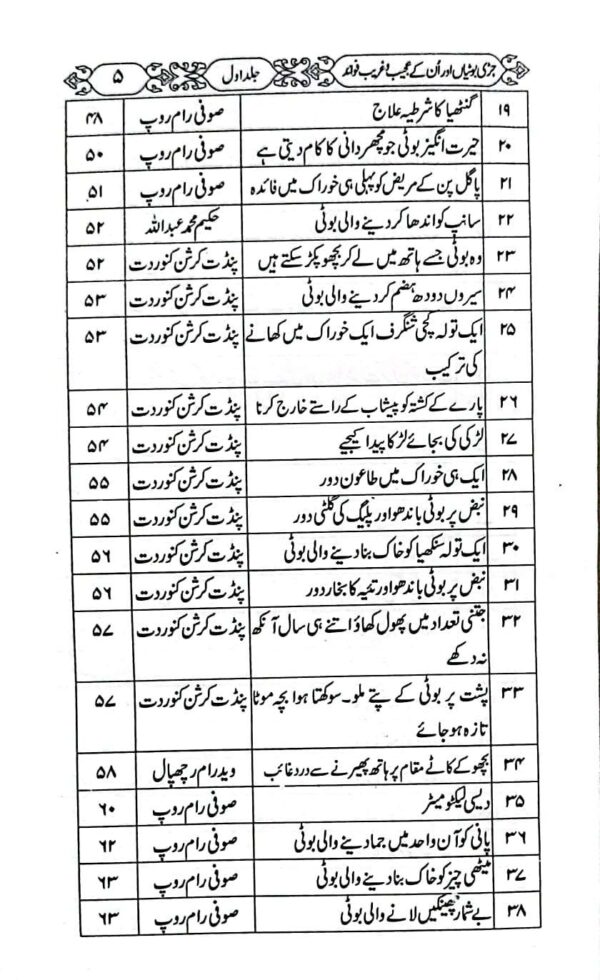 جڑی بوٹیاں اور اُن کے عجیب و غریب فوائد جلد اول ۵
۱۹ گنٹھیا کا شرطیہ علاج صوفی رام روپ ۴۸
۲۰ حیرت انگیز بوٹی جو مچھر دانی کا کام دیتی ہے صوفی رام روپ ۵۰
۲۱ پاگل پن کے مریض کو پہلی ہی خوراک میں فائدہ صوفی رام روپ ۵۱
۲۲ سانپ کو اندھا کر دینے والی بوٹی حکیم محمد عبداللہ ۵۲
۲۳ وہ بوٹی جسے ہاتھ میں لے کر بچھو پکڑ سکتے ہیں پنڈت کرشن کنور دت ۵۲
۲۴ سیروں دودھ ہضم کر دینے والی بوٹی پنڈت کرشن کنور دت ۵۳
۲۵ ایک تولہ کچی شنگرف ایک خوراک میں کھانے پنڈت کرشن کنور دت ۵۳
کی ترکیب
۲۶ پارے کے کشتہ کو پیشاب کے راستے خارج کرنا پنڈت کرشن کنور دت ۵۴
۲۷ لڑکی کی بجائے لڑکا پیدا کیجیے پنڈت کرشن کنور دت ۵۴
۲۸ ایک ہی خوراک میں طاعون دور پنڈت کرشن کنور دت ۵۵
۲۹ نبض پر بوٹی باندھو اور پلیگ کی گلٹی دور پنڈت کرشن کنور دت ۵۵
۳۰ ایک تولہ سنکھیا کو خاک بنا دینے والی بوٹی پنڈت کرشن کنور دت ۵۶
۳۱ نبض پر بوٹی باندھو اور تئیہ کا بخار دور پنڈت کرشن کنور دت ۵۶
۳۲ جتنی تعداد میں پھول کھاؤ اتنے ہی سال آنکھ پنڈت کرشن کنور دت ۵۷
نہ دکھے
۳۳ پشت پر بوٹی کے پتے ملو۔ سوکھتا ہوا بچہ موٹا پنڈت کرشن کنور دت ۵۷
تازہ ہو جائے
۳۴ بچھو کے کاٹے مقام پر ہاتھ پھیرنے سے درد غائب وید رام رچھپال ۵۸
۳۵ دیسی لیکٹومیٹر صوفی رام روپ ۶۰
۳۶ پانی کو آن واحد میں جما دینے والی بوٹی صوفی رام روپ ۶۲
۳۷ میٹھی چیز کو خاک بنا دینے والی بوٹی صوفی رام روپ ۶۳
۳۸ بے شمار چھینکیں لانے والی بوٹی صوفی رام روپ ۶۳